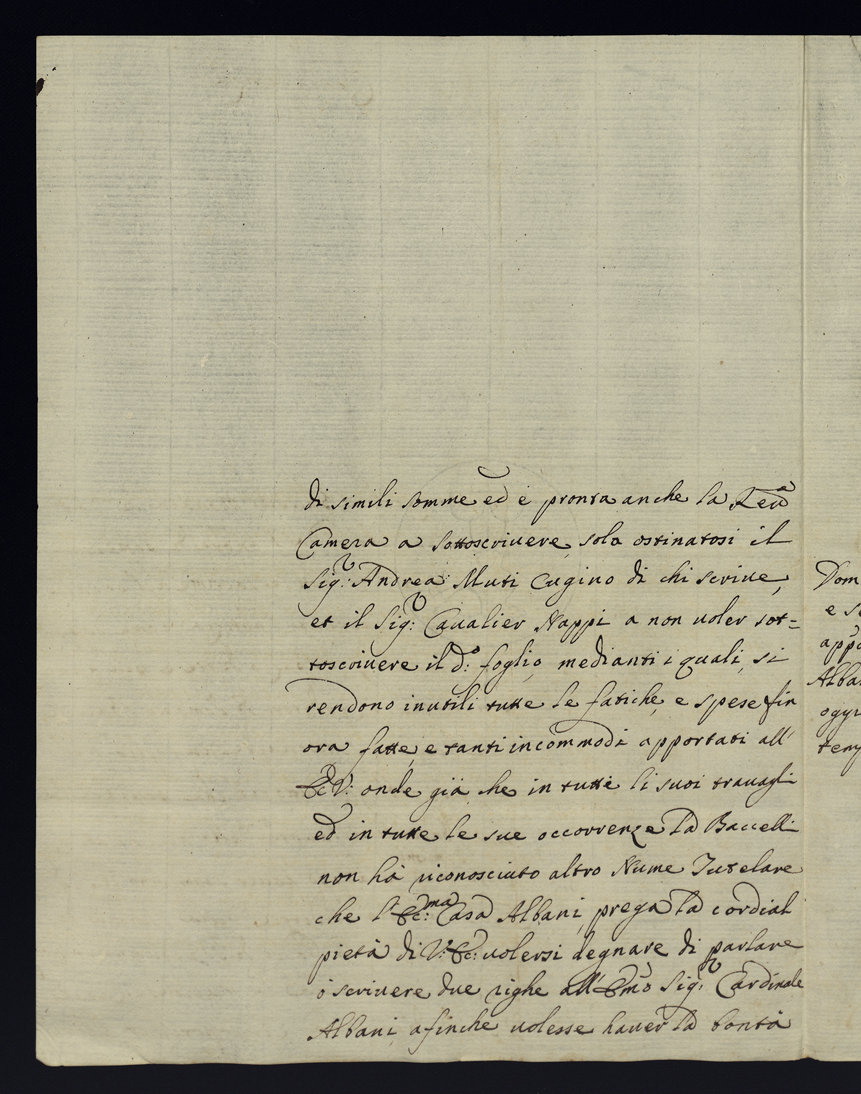 di simili somme ed è pronta anche la Reu.a
Camera a sottoscriuere, solo ostinatosi il
Sig.r Andrea Muti Cugino di chi scriue,
et il Sig.r Caualier Nappi a non uoler sot=
toscriuere il d.o foglio, medianti i quali, si
rendono inutili tutte le fatiche, e spese fin
ora fatte, e tanti incommodi apportati all'
Ec. V: onde già che in tutti li suoi trauagli
ed in tutte le sue occorrenze la Baccelli
non hà riconosciuto altro Nume Tutelare
che l'Ec:ma Casa Albani, prega la cordial
pietà di V: Ec: uolersi degnare di parlare
ò scriuere due righe all'Emo Sig.r Cardinale
Albani, afinche uolesse hauer la bontà
Dom
e s
app
Alba
ogg
temp